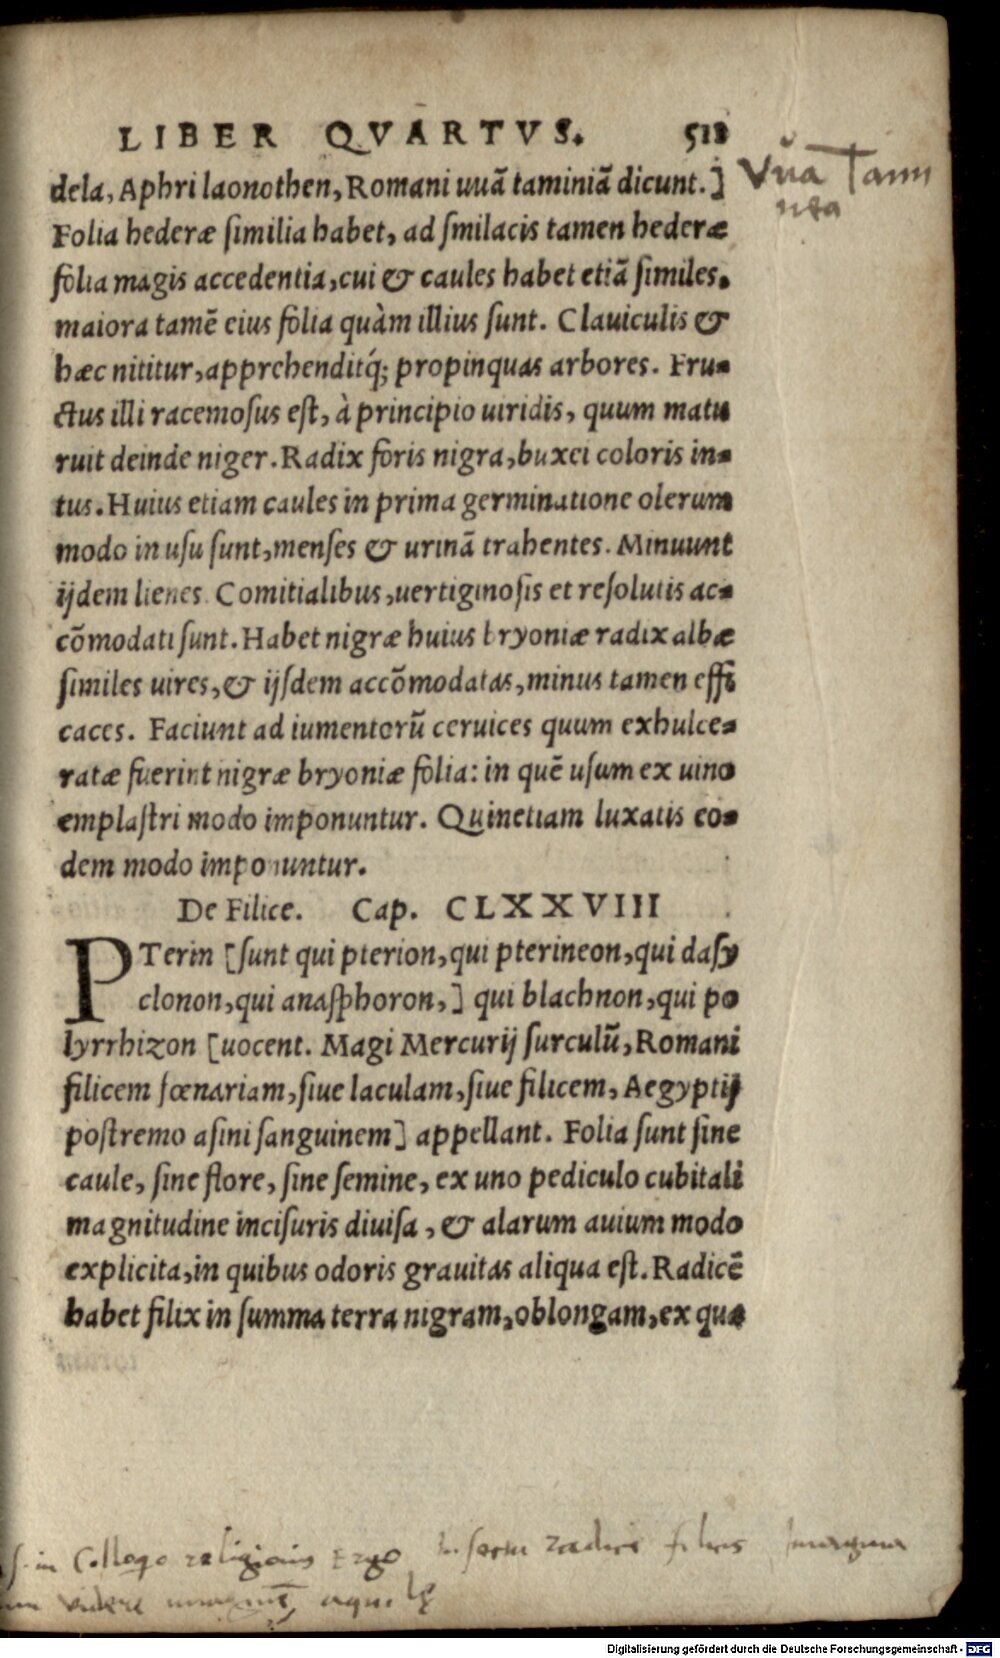 LIBER QVARTVS. 511
dela, Aphri laonothen, Romani uuã taminiã dicunt.]
Vua Tami
nea
Folia hederæ ſimilia habet, ad ſmilacis tamen hederæ
folia magis accedentia, cui & caules habet etiã ſimiles.
maiora tamẽ eius folia quàm illius ſunt. Clauiculis &
hæc nititur, apprehenditq́; propinquas arbores. Fru-
ctus illi racemoſus eſt, à principio uiridis, quum matu
ruit deinde niger. Radix foris nigra, buxei coloris in-
tus. Huius etiam caules in prima germinatione olerum
modo in uſu ſunt, menſes & urinã trahentes. Minuunt
ijdem lienes. Comitialibus, uertiginoſis et reſolutis ac-
cõmodati ſunt. Habet nigræ huius bryoniæ radix albæ
ſimiles uires, & ijſdem accõmodatas, minus tamen effi
caces. Faciunt ad iumentorũ ceruices quum exhulce-
ratæ fuerint nigræ bryoniæ folia: in quẽ uſum ex uino
emplaſtri modo imponuntur. Quinetiam luxatis eo-
dem modo imponuntur.
De Filice. Cap. CLXXVIII
PTerin [ſunt qui pterion, qui pterineon, qui daſy
clonon, qui anaſphoron,] qui blachnon, qui po
lyrrhizon [uocent. Magi Mercurij ſurculũ, Romani
filicem fœnariam, ſiue laculam, ſiue filicem, Aegyptij
poſtremo aſini ſanguinem] appellant. Folia ſunt ſine
caule, ſine flore, ſine ſemine, ex uno pediculo cubitali
magnitudine inciſuris diuiſa, & alarum auium modo
explicita, in quibus odoris grauitas aliqua eſt. Radicẽ
habet filix in ſumma terra nigram, oblongam, ex qua
in Collogo religionis Ergo radicis filicis
videre aquile
Digitalisierung gefördert durch die Deutsche Forschungsgemeinschaft - DFG